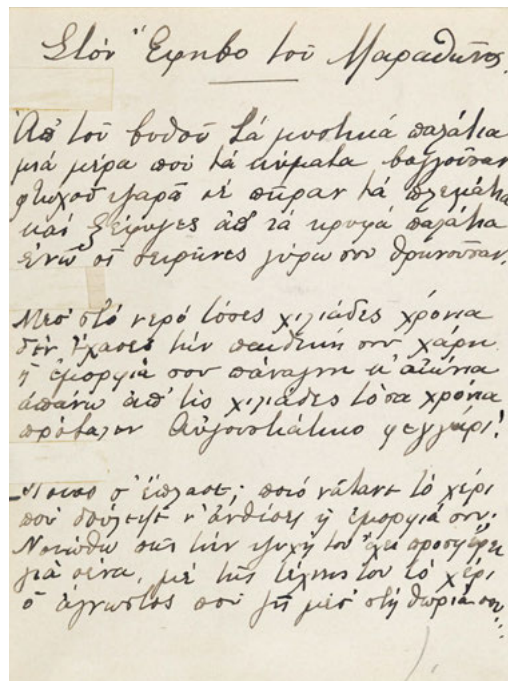 Στόν Ἔφηβο τοῦ Μαραθῶνος.
Ἀπ' τοῦ βυθοῦ τά μυστικά παλάτια
μιά μέρα πού τά κύματα βογγοῦσαν
φτωχοῦ ψαρᾶ σέ πῆραν τά πλεμάτια
καί ξέφυγες ἀπ' τά κρυφά παλάτια
ἐνῶ οἱ σειρῆνες γύρω σου θρηνοῦσαν.
Μεσ' στό νερό τόσες χιλιάδες χρόνια
δέν ἔχασες τήν παιδική σου χάρη
ἡ ἐμορφιά σου πάναγνη κ' αἰώνια
ἀπάνω ἀπ' τίς χιλιάδες τόσα χρόνια
πρόβαλεν Αὐγουστιάτικο φεγγάρι!
Ποιός σ' ἔπλασε; ποιό νἄτανε τό χέρι
πού δούλεψε ν' ἀνθίσῃ ἡ ἐμορφιά σου.
Νοιώθω πῶς τήν ψυχή του ἔχει προσφέρει
γιά σένα, μέ τῆς τέχνης του τό χέρι
ὁ ἄγνωστος πού ζῇ μέσ' στή θωριά σου